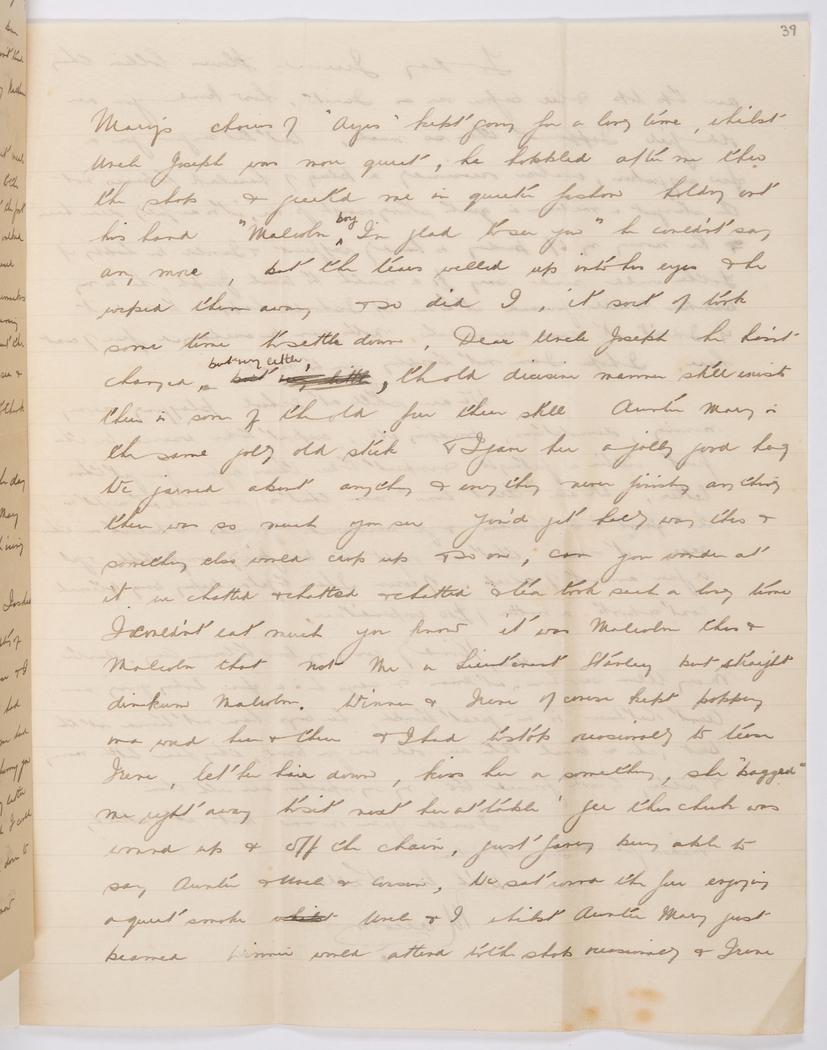 39
Mary's chorus of "Ayes" kept going for a long time, whilst
Uncle Joseph was more quiet, he hobbled after me thro
the shop & greet'd me in quieter fashion holding out
his hand "Malcolm boy I'm glad to see you" he couldn't say
any more, but the tears welled up into his eyes & he
wiped them away & so did I, it sort of took
some time to settle down, Dear Uncle Joseph he hasn't
changed but very little, th old decisive manner still exists
there is some of th old fire there still Auntie Mary is
the same jolly old stick & I gave her a jolly good hug
We jawed about anything & everything never finishing anything
there was so much you see You'd get half way thro &
something else would crop up & so on, can you wonder at
it we chatted & chatted & chatted & tea took such a long time
I couldn't eat much you know it was Malcolm this &
Malcolm that not Mr or Lieutenant Stanley but straight
dinkum Malcolm. Winnie & Irene of course kept popping
in a word here & there & I had to stop occasionally to tease
Irene, let her hair down, kiss her or something, she "bagged"
me right away to sit next her at table' gee this chick was
wound up & off the chain, just fancy being able to
say Auntie & Uncle & Cousin, We sat round the fire enjoying
a quiet smoke whilst Uncle & I whilst Auntie Mary just
beamed Winnie would attend to th shop occasionally & Irene